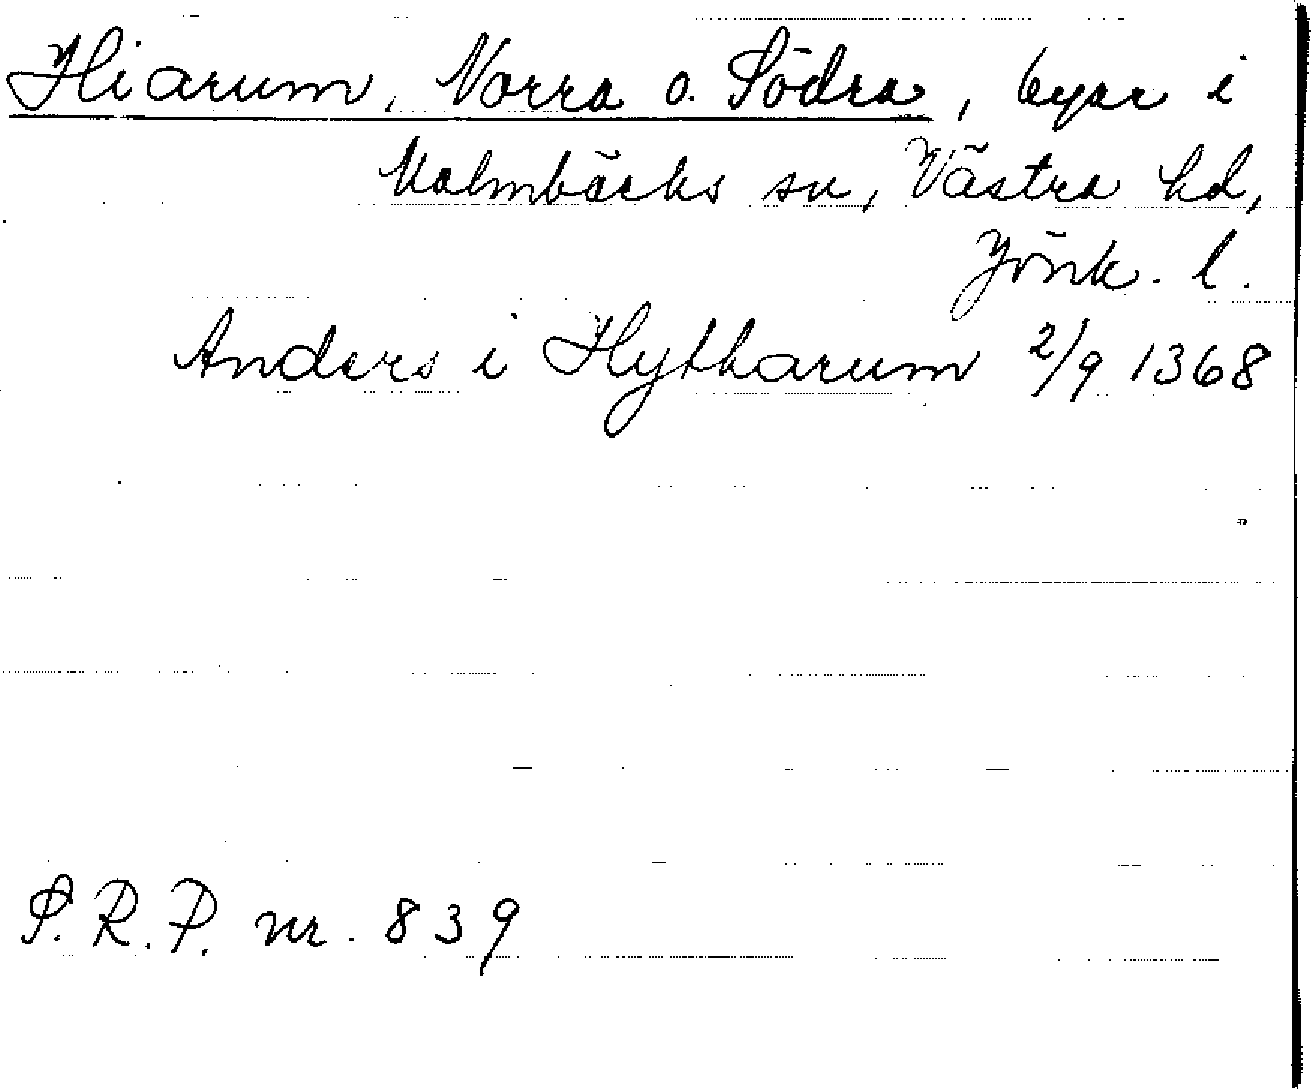 Hiarum, Norra o. Södra, byar i
Malmbäcks sn, Västra hd,
Jönk. l.
Anders i Hytharum 2/9 1368
S.R.P. nr. 839